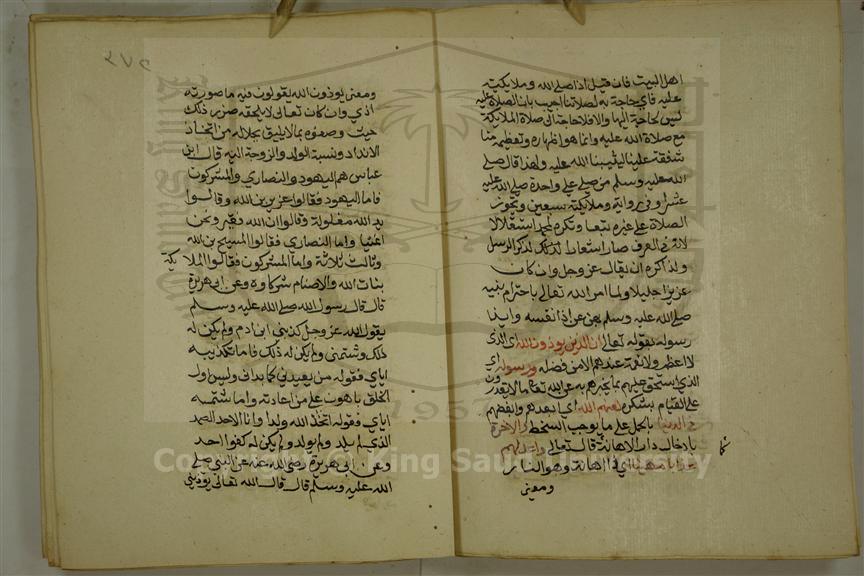 اهل البيت فان قيل اذا صلى الله وملائكته
عليه فاي حاجة به لصلاتنا اجيب بان الصلاة عليه
ليس لحاجة اليها والا فلا حاجة الى صلاة الملائكة
مع صلاة الله عليه وانما هو اظهاره وتعظيمه منا
شفقة علينا ليثيبنا الله عليه ولهذا قال صلى
الله عليه وسلم من صلى علي واحدة صلى الله عليه
عشرا وفي رواية وملائكته سبعين وتجوز
الصلاة على غيره تبعا وتكره لمجد استقلالا
لانه في العرف صار شعارا لذلك لذكر الرسل
ولذا كره ان يقال عز وجل وان كان
عزيزا جليلا ولما امر الله تعالى باحترام نبيه
صلى الله عليه وسلم نهى عن اذا نفسه وايذا
رسوله بقوله تعالى ان الذين يوذون الله اي الذي
لا اعظم ولا نعمة عندهم الا من فضله ورسوله اي
الذي استحق عليهم بما يخبرهم به عن الله تعالى ما لا يقدرون
على القيام بشكره لعنهم الله اي ابعدهم وابغضهم
في الدنيا بالحمل على ما يوجب السخط والاخرة
بادخال دار الاهانة كما قال تعالى واعد لهم
عذابا مهينا اي ذا اهانة وهو النار
ومعنى
٢٧٢
ومعنى يوذون الله يقولون فيه ما صورته
اذي وان كان تعالى لا يلحقه ضرر ذلك
حيث وصفوه بما لا يليق بجلاله من اتخاذ
الانداد ونسبة الولد والزوجة اليه قال ابن
عباس هم اليهود والنصارى والمشركون
فاما اليهود فقالوا عزير بن الله وقالوا
يد الله مغلولة وقالوا ان الله فقير ونحن
اغنيا واما النصارى فقالوا المسيح بن الله
وثالث ثلاثة واما المشركون فقالوا الملائكة
بنات الله والاصنام شركاوه وعن ابي هريرة
قال قال رسول الله صلى الله عليه وسلم
يقول الله عز وجل كذبني ابن ادم ولم يكن له
ذلك وشتمني ولم يكن له ذلك فاما تكذيبه
اياي فقوله من يعيدني كما بداني وليس اول
الخلق باهون علي من اعادته واما شتمه
اياي فقوله اتخذ الله ولدا وانا الاحد الصمد
الذي لم يلد ولم يولد ولم يكن له كفوا احد
وعن ابي هريرة رضي الله عنه عن النبي صلى
الله عليه وسلم قال قال الله تعالى يوذيني
1957
Copyright © King Saud University